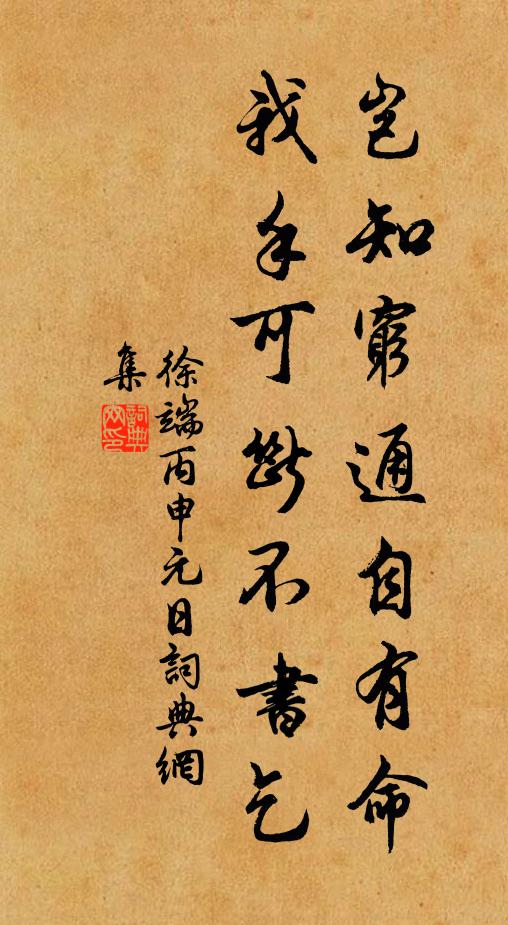 豈知窮通自有命
我手可斷不書乞
徐端丙申元日詞典網
集
詞典